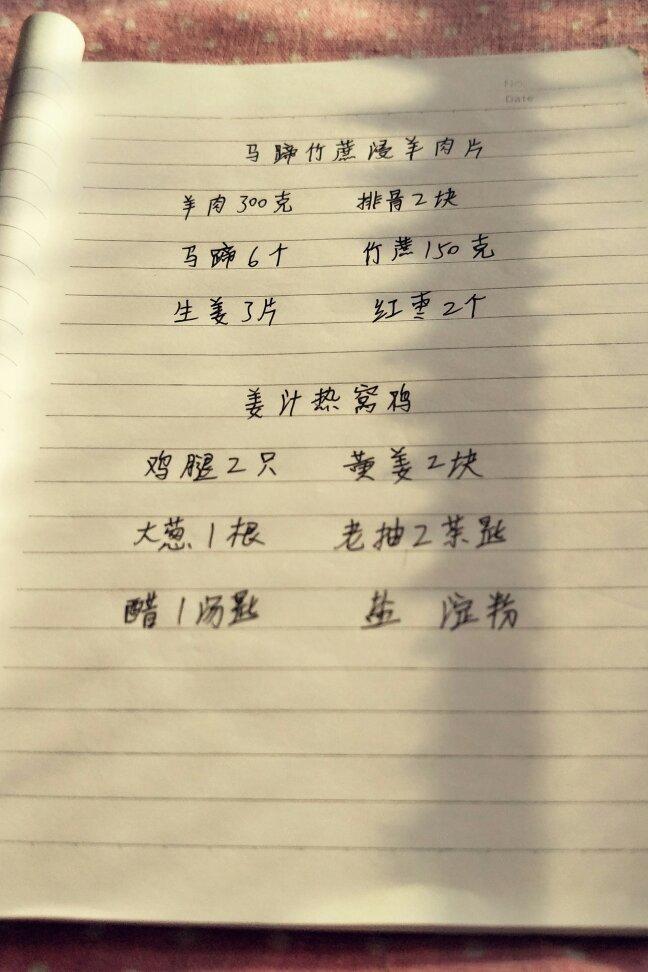 No
Date
马蹄竹蔗浸羊肉片
羊肉300克 排骨2块
马蹄6个 竹蔗150克
生姜3片 红枣2个
姜汁热窝鸡
鸡腿2只 黄姜2块
大葱1根 老抽2茶匙
醋1汤匙 盐 淀粉